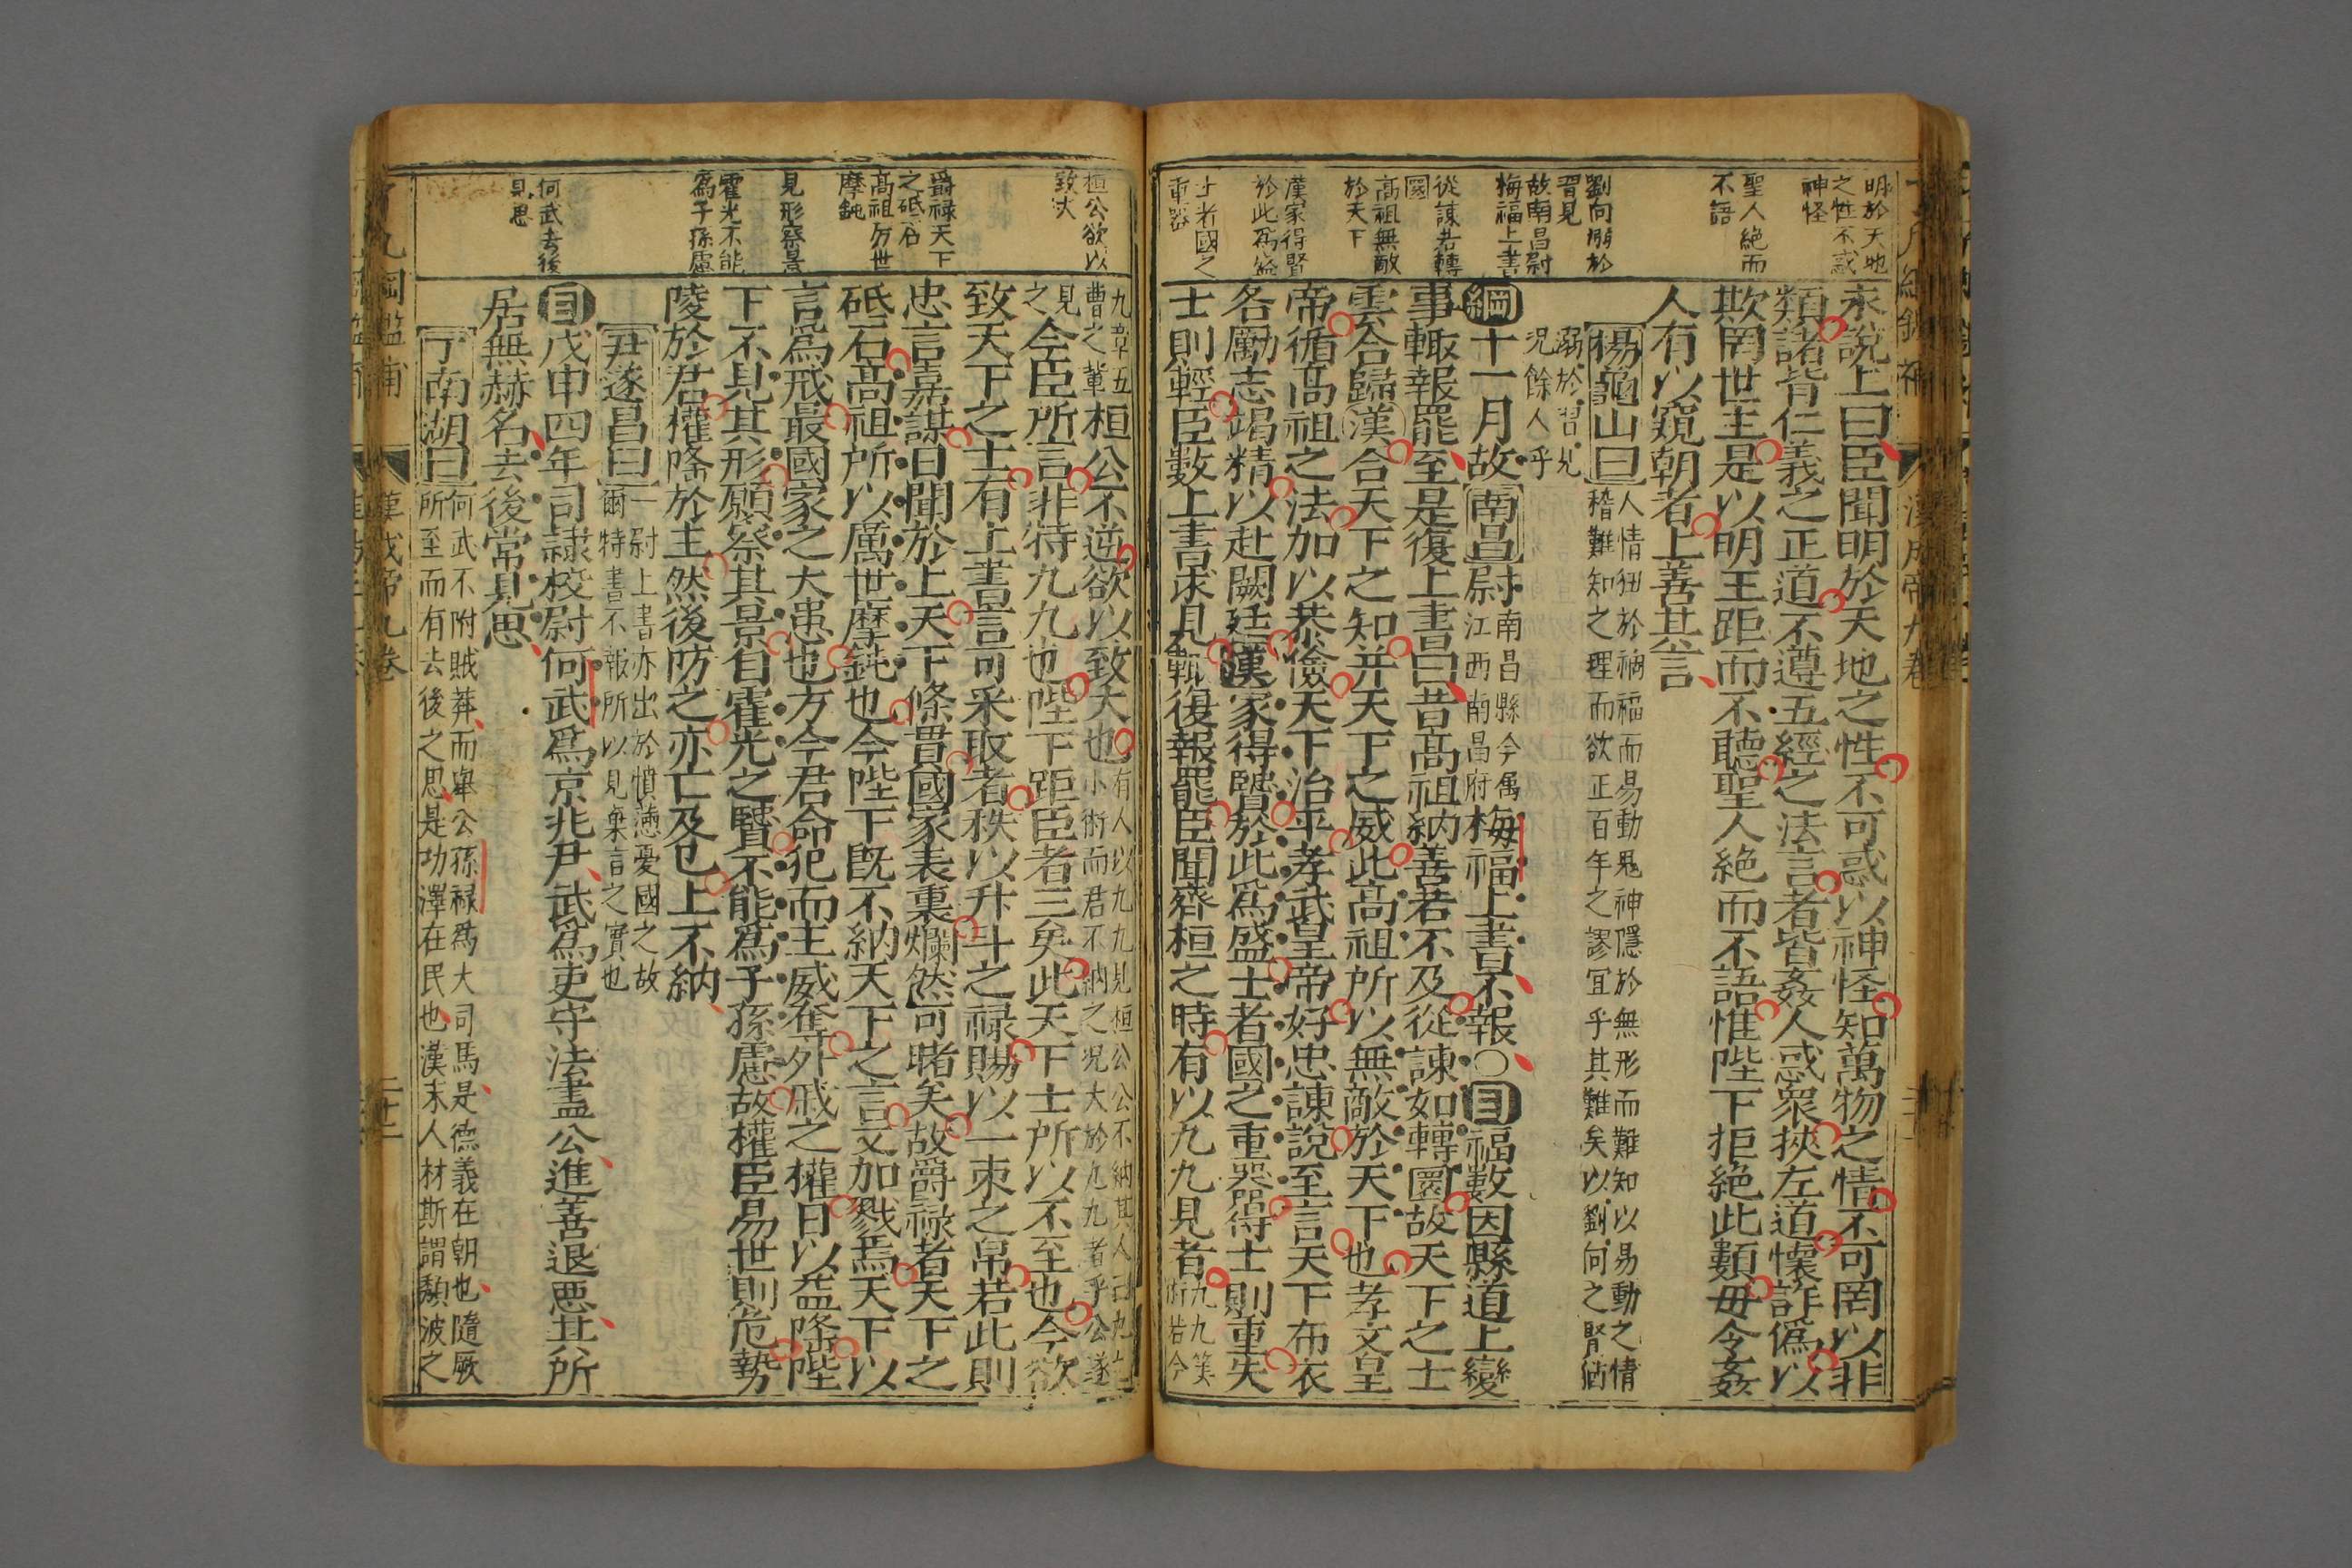 明於天地
之性不惑
神怪
聖人絶而
不語
劉向溺於
習見
故南昌尉
梅福上書
從諫若轉
圜
高祖無敵
於天下
漢家得賢
於此爲盛
士者國之
重器
永說上曰臣聞明於天地之性不可惑以神怪知萬物之情不可罔以非
類諸背仁義之正道不遵五經之法言者皆姦人惑衆挾左道懷詐僞以
欺罔世主是以明王距而不聽聖人絶而不語惟陛下拒絶此類毋令姦
人有以窺朝者上善其言
楊龜山曰
人情狃於禍福而易動鬼神隱於無形而難知以易動之情
稽難知之理而欲正百年之謬宜乎其難矣以劉向之賢猶
溺於習見
况餘人乎
綱十一月故南昌尉
南昌縣今属
江西南昌府
梅福上書不報○目福數因縣道上變
事輙報罷至是復上書曰昔高祖納善若不及從諫如轉圜故天下之士
雲合歸漢合天下之知并天下之威此高祖所以無敵於天下也孝文皇
帝循高祖之法加以恭儉天下治平孝武皇帝好忠諫說至言天下布衣
各勵志竭精以赴闕廷漢家得賢於此爲盛士者國之重器得士則重失
士則輕臣數上書求見輒復報罷臣聞齊桓之時有以九九見者
九九筭
術若今
桓公欲以
致大
爵禄天下
之砥石
高祖厉世
摩鈍
見形察景
霍光不能
爲子孫慮
何武去後
見思
九章五
曹之軰
桓公不逆欲以致大也
有人以九九見桓公公不納其人曰九九
小術而君不納之况大於九九者乎公遂
見
之
今臣所言非特九九也陛下距臣者三矣此天下士所以不至也今欲
致天下之士有上書言可采取者秩以升斗之禄賜以一束之帛若此則
忠言嘉謀日聞於上天下條貫國家表裏爛然可睹矣故爵禄者天下之
砥石高祖所以厲世摩鈍也今陛下既不納天下之言又加戮焉天下以
言爲戒最國家之大患也方今君命犯而主威奪外戚之權日以益隆陛
下不見其形願察其景自霍光之賢不能爲子孫慮故權臣易世則危勢
陵於君權隆於主然後防之亦亡及也上不納
尹遂昌曰
一尉上書亦出於憤懣憂國之故
爾特書不報所以見棄言之實也
目戊申四年司隷校尉何武爲京兆尹武爲吏守法盡公進善退惡其所
居無赫名去後常見思
丁南湖曰
何武不附賊莽而舉公孫禄爲大司馬是德義在朝也隨厥
所至而有去後之思是功澤在民也漢末人材斯謂頽波之